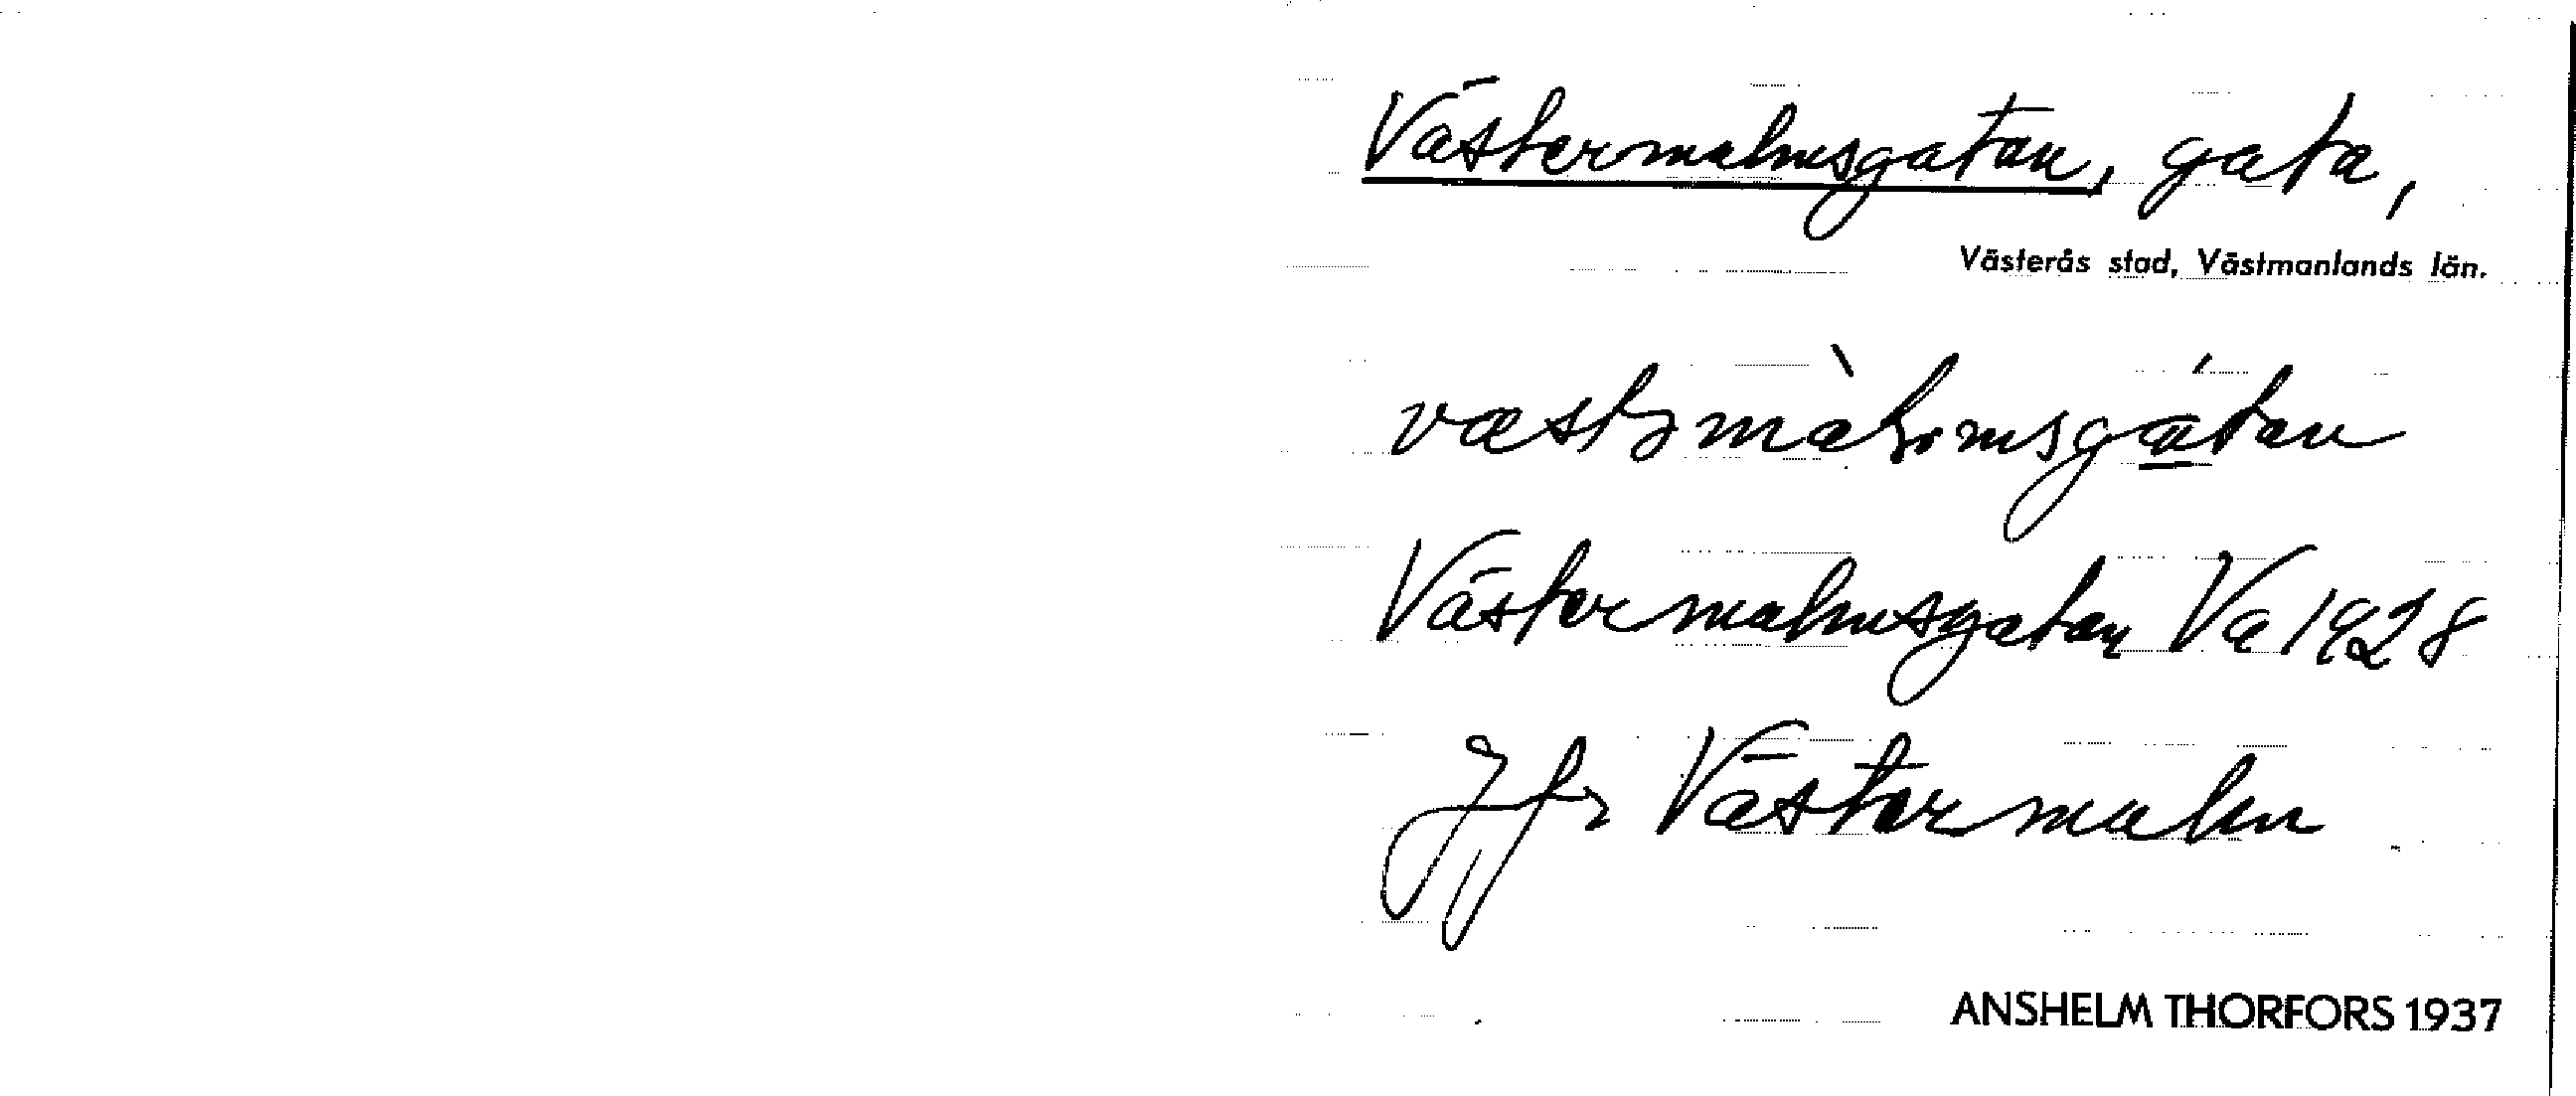 Västermalmsgatan, gata,
Västerås stad, Västmanlands län.
Västermalmsgatan Va 1928
Jfr Västermalm
ANSHELM THORFORS 1937